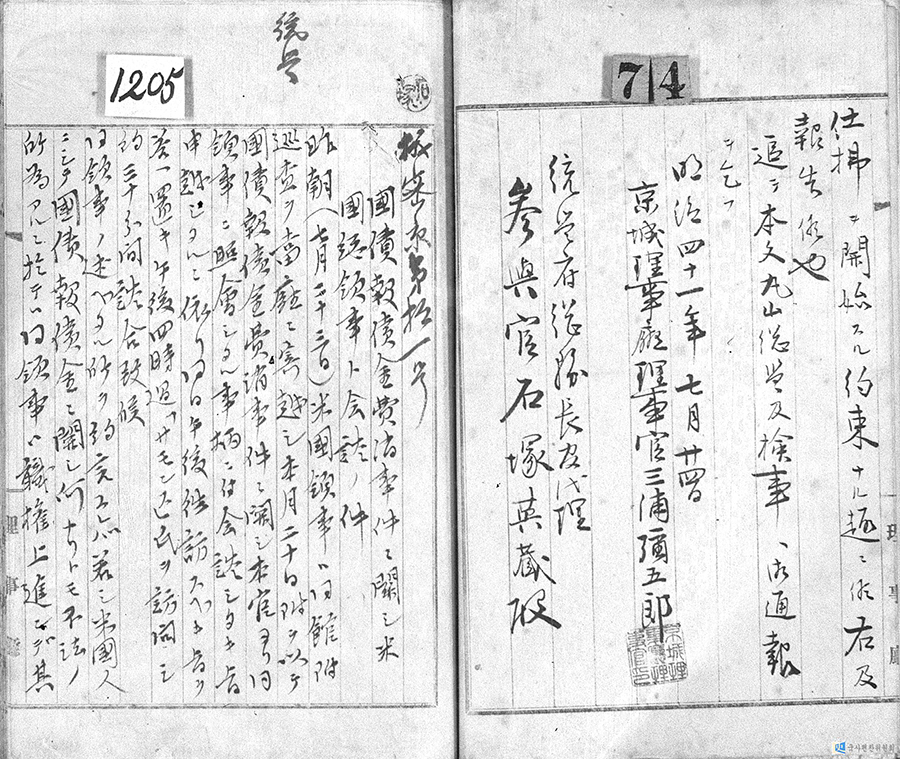 仕掃ヲ開始スル約束ナル趣ニ候右及
報告候也
追テ本文丸山総監及検事ヘ御通報
ヲ乞フ
明治四十一年七月廿四日
京城理事庁理事官三浦彌五郎
統監府総務長官代理
参與官石塚英蔵殿
74
統号
1205
機密京第拾一号
国債報償金費消事件ニ關シ米
国総領事ト会談ノ件
昨朝(七月二十三日)米國領事ハ館附
巡査ヲ當廳ニ寄越シ本月二十日附ヲ以テ
國債報償金費消事件ニ關シ本官ヨリ同
領事ニ照會シタル事柄ニ付会談シタキ旨
申越シタルニ依リ同日午後往訪スヘキ旨ヲ
答ヘ置キ午後四時過「サモンス」氏ヲ訪問シ
約三十分間談合致候
同領事ノ述ヘタル所ヲ約言スレハ若シ米國人
ニシテ國債報償金ニ關シ何ナリトモ不法ノ
所為アルニ於テハ同領事ハ職權上進ンデ其
理事廳
국사편찬위원회